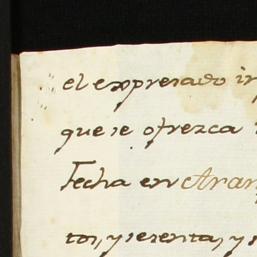 el expresado in
que se ofrezca
Fecha en Aran
tos, y sesenta, y s